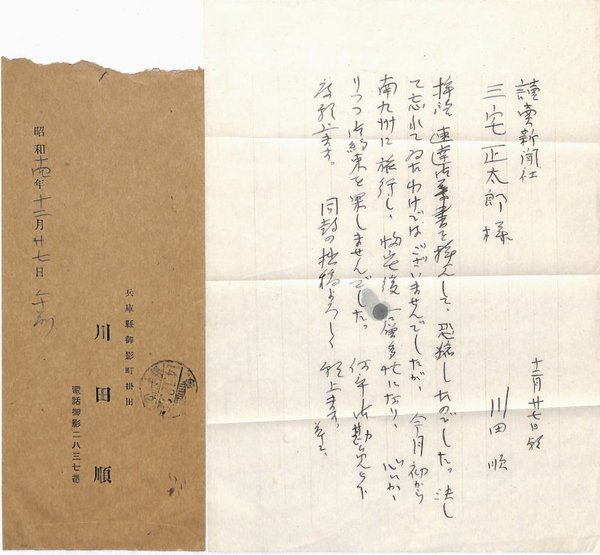 讀賣新聞社
三宅正太郎様
十二月廿七日朝
川田 順
拝復 速達御葉書を拝見して、恐縮したのでした。決し
て忘れてゐたわけではございませんでしたが、今月初から
南九州に旅行し、帰宅後一層多忙になり、心にかゝ
りつつ御約束を果しませんでした。何卒御勘弁下
度願上ます。 同封の拙稿よろしく 願上ます。草々
兵庫縣御影町掛田
川田 順
電話御影二八三七番
昭和十四年十二月廿七日